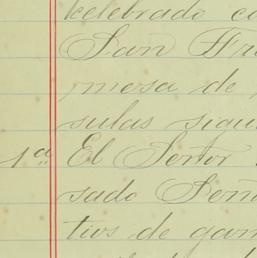 kelebrado co
San Fra
mesa de
sulas sigui
1ª El Señor
sado Seño
tivos de gan